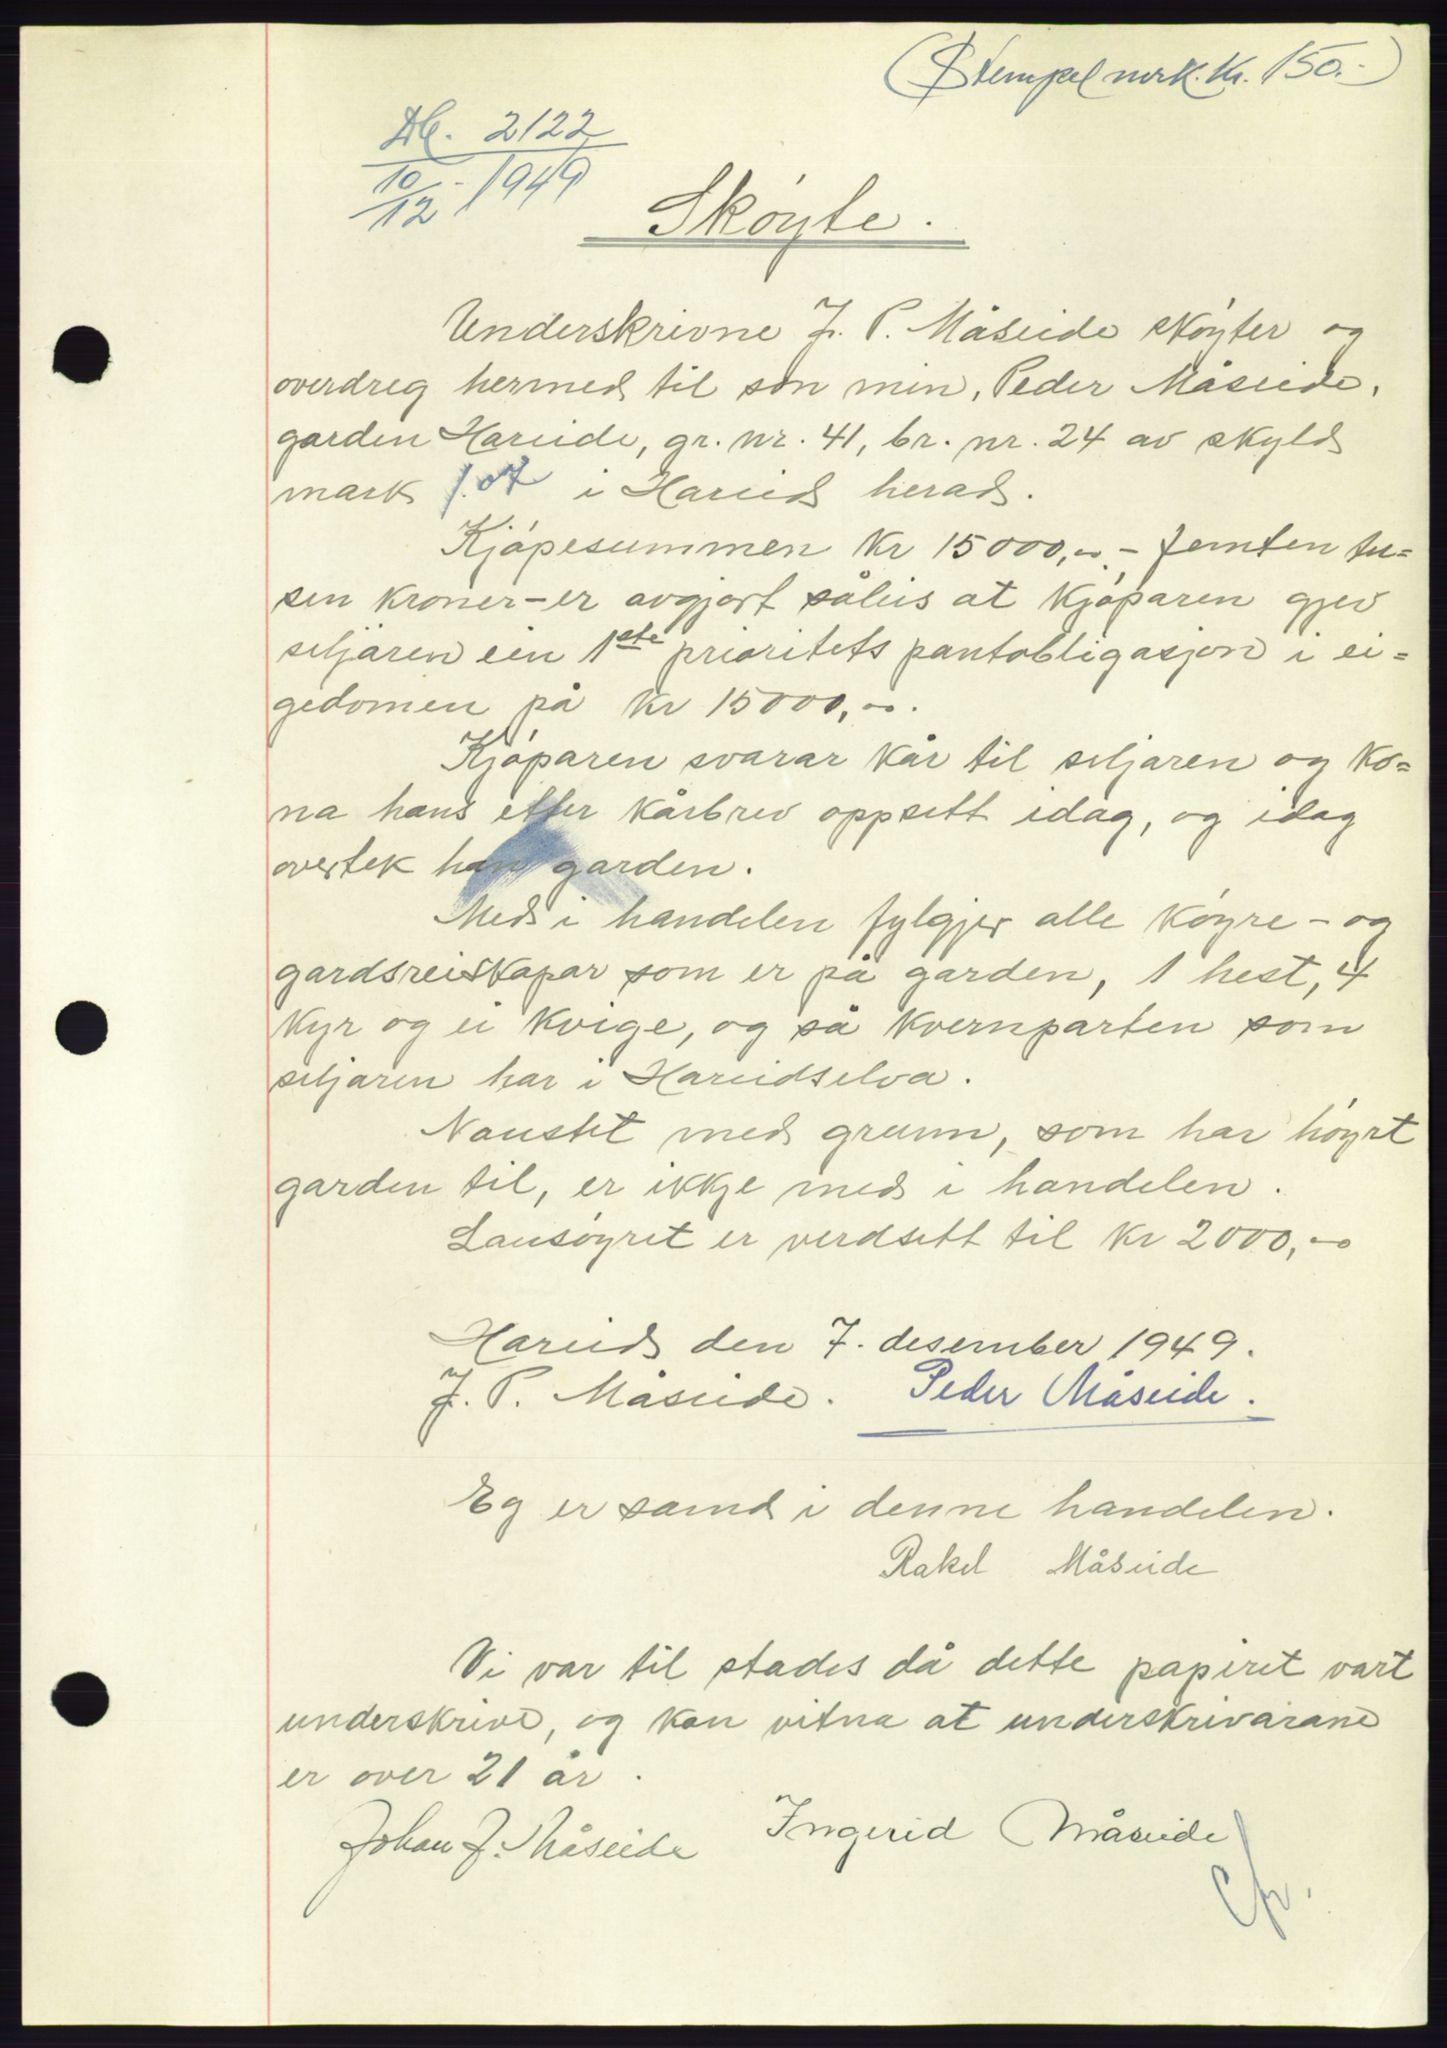 (Stempelmerk. kr. 150.-)
Db. 2122
10/12 - 1949
Skøyte.
Underskrivne J. P. Måseide skøyter og
overdreg hermed til son min, Peder Måseide,
garden Hareide, gr. nr. 41, br. nr. 24 av skyld
mark 1.07 i Hareid herad.
Kjøpesummen kr 15000,-. - femten tu=
sen kroner - er avgjort såleis at kjøparen gjev
seljaren ein 1ste prioritets pantobligasjon i ei=
gedomen på kr 15000,-.
Kjøparen svarar kår til seljaren og ko=
na hans etter kårbrev oppsett idag, og idag
overtek han garden.
Med i handelen fylgjer alle køyre- og
gardsreiskapar som er på garden, 1 hest, 4
kyr og ei kvige, og så kvernparten som
seljaren har i Hareidselva.
Naustet med grunn, som har høyrt
garden til, er ikkje med i handelen.
Lausøyret er verdsett til kr 2000,-
Hareid den 7. desember 1949.
J. P. Måseide. Peder Måseide.
Eg er samd i denne handelen.
Rakel Måseide
Vi var til stades då dette papiret vart
underskrive, og kan vitna at underskrivarane
er over 21 år.
Johan J. Måseide Ingerid Måseide